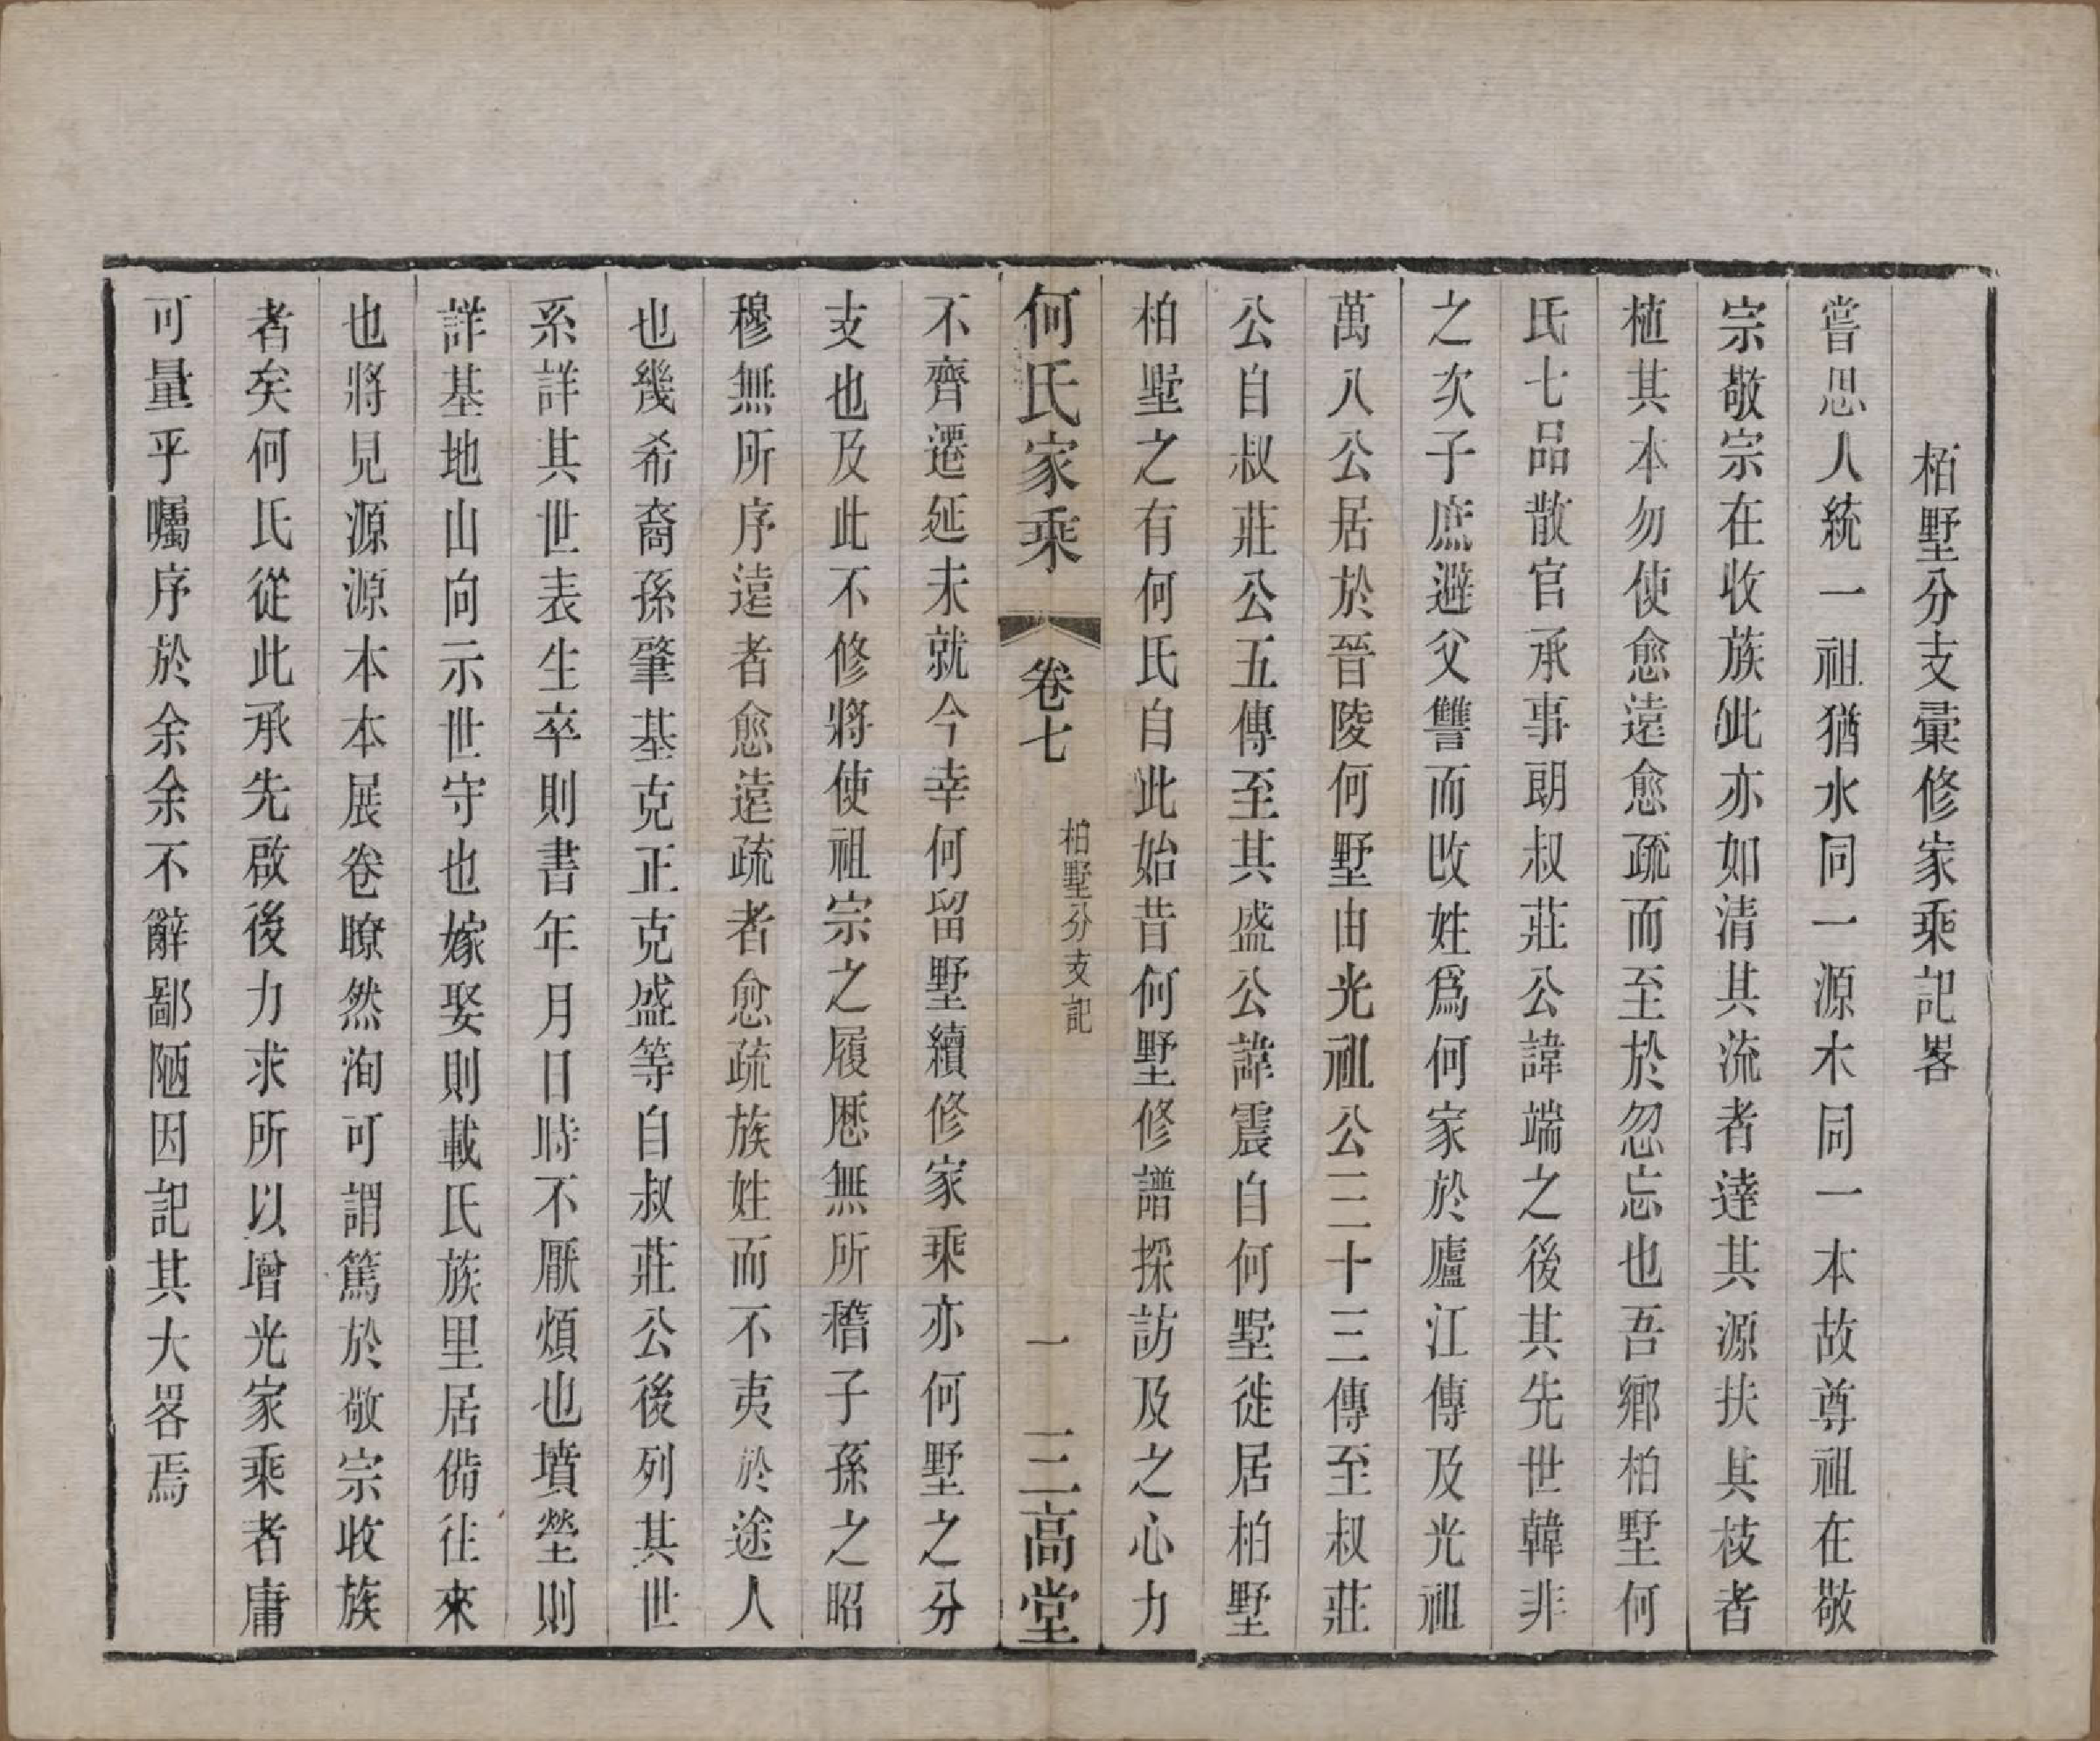 栢墅分支彚修家乘記畧
嘗思人統一祖猶水同一源木同一本故尊祖在敬
宗敬宗在收族此亦如清其流者達其源扶其枝者
植其本勿使愈遠愈疏而至於忽忘也吾鄉柏墅何
氏七品散官承事郎叔莊公諱端之後其先世韓非
之次子庶避父讐而改姓爲何家於廬江傳及光祖
萬八公居於晉陵何墅由光祖公三十三傳至叔莊
公自叔莊公五傳至其盛公諱震自何墅徙居柏墅
柏墅之有何氏自此始昔何墅修譜採訪及之心力
何氏家乘
卷七
柏墅分支記
一
三高堂
不齊遷延未就今幸何留墅續修家乘亦何墅之分
支也及此不修將使祖宗之履歷無所稽子孫之昭
穆無所序遠者愈遠疏者愈疏族姓而不夷於途人
也幾希裔孫肇基克正克盛等自叔莊公後列其世
系詳其世表生卒則書年月日時不厭煩也墳塋則
詳基地山向示世守也嫁娶則載氏族里居備往來
也將見源源本本展卷暸然洵可謂篤於敬宗收族
者矣何氏從此承先啟後力求所以增光家乘者庸
可量乎囑序於余余不辭鄙陋因記其大畧焉